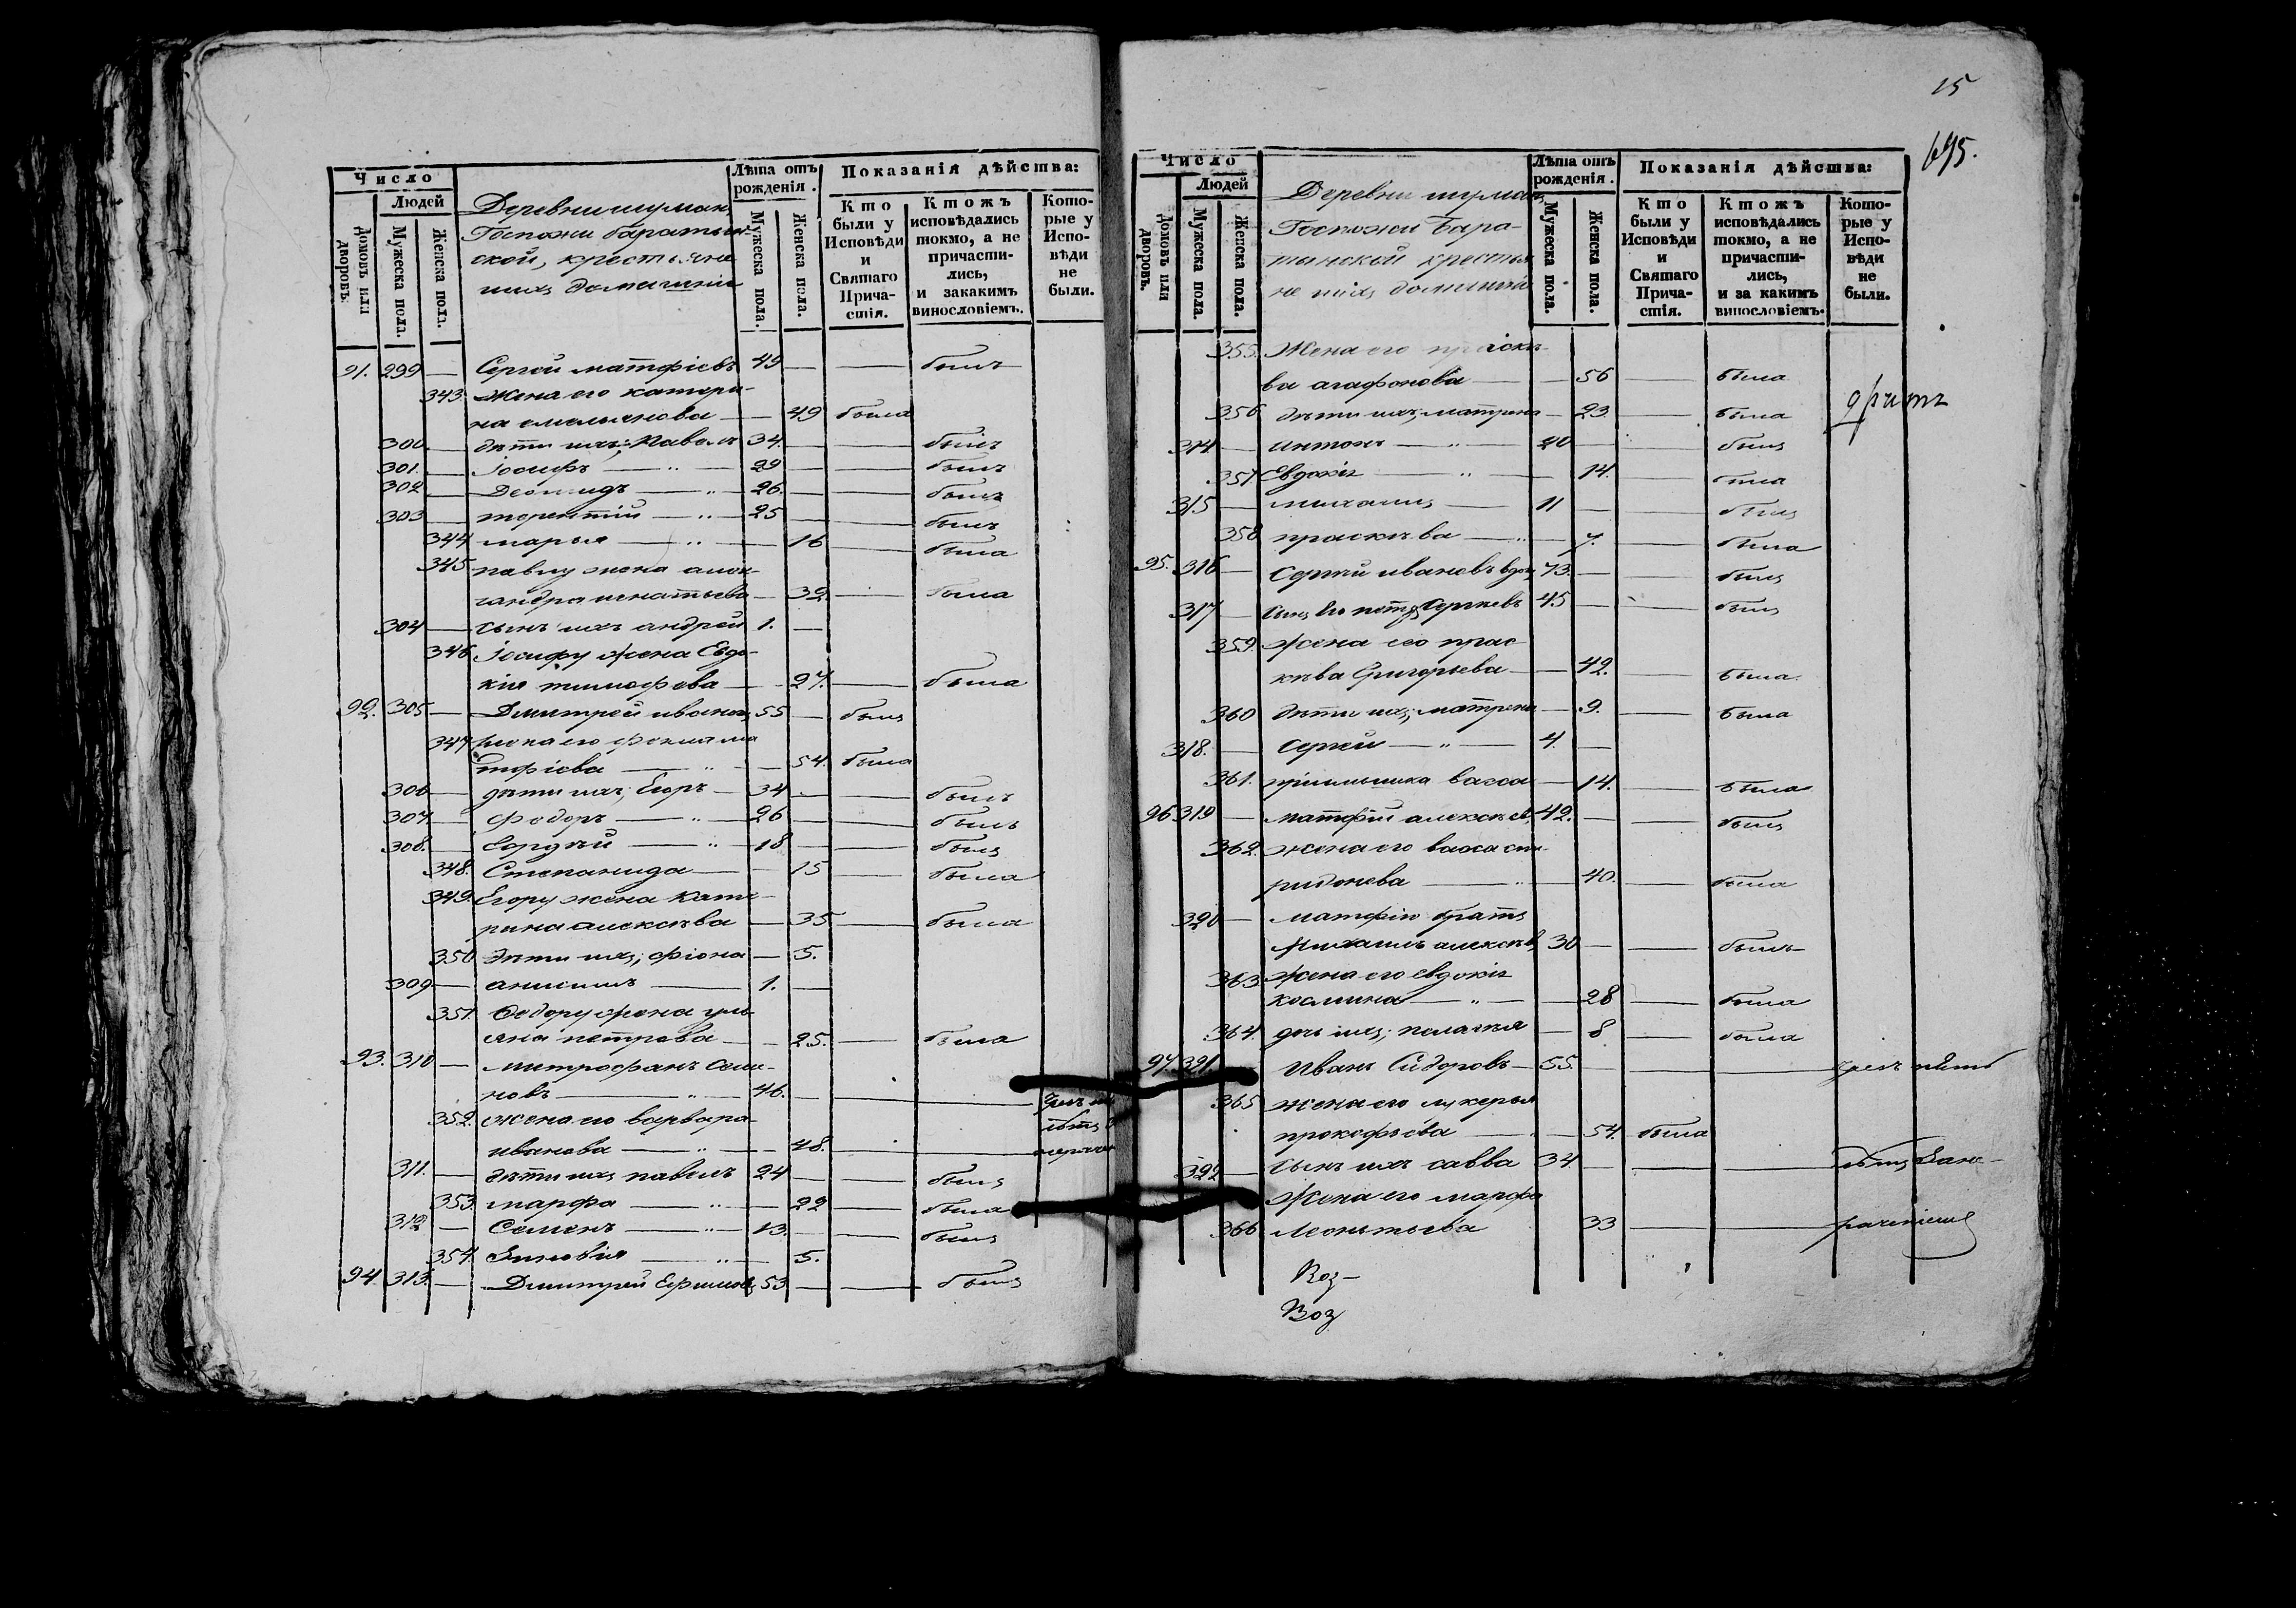 Число
Людей
Домовъ или дворовъ.
Мужеска пола.
Женска пола.
Деревни шуман
Госпожи баратын-
ской, крестьяне
ихъ домашніи
Лѣта отъ рожденія.
Мужеска пола.
Женска пола.
Показанія дѣйства:
Кто были у Исповѣди и Святаго Причастія.
Ктожъ исповѣдались токмо, а не причастились, и закакимъ винословіемъ.
Которые у Исповѣди не были.
91. 299 — Сергей матфіевъ 49 — — былъ
343. Жена его катери-
на емельянова — — 49 была
300 — дѣти ихъ; Павелъ 34. — — былъ
301. — Іосифъ — „ — 29 — — былъ
302 — Леонидъ — „ — 26. — — былъ
303 — терентій — „ — 25 — — былъ
344 марья — „ — 16 — была
345 павлу жена алек-
сандра игнатьева — 32. — была
304 — сынъ ихъ андрей 1. —
346 Іосифу жена Евдо-
кия тимофева — 27. — была
92. 305 — Дмитрей ивановъ 55 — былъ
347 жена его фекла ма
тфіева — „ — 54. была
306 — дѣти ихъ; Егоръ — 34 — — былъ
307 — федоръ — „ — 26 — — былъ
308. — Сергѣй — „ — 18 — — былъ
348. Степанида — 15 — была
349. Егору жена Кате-
рина алексѣва — 35 — была
350 дѣти ихъ; фіона — 5.
309 — анисимъ — 1. —
351 Ѳедору жена уль
яна петрова — 25. — была
93. 310 — митрофанъ Семе-
новъ — „ — 46. —
352. жена его варвара
иванова — „ — 48. —
311. — дѣти ихъ павелъ 24 — — былъ
353. марфа — „ — 22 — была
312 — Семенъ — „ — 13. — — былъ
354. Зиновія — „ — 5.
94. 313. — Дмитрей Ефимовъ 53 — — былъ
15
695.
Число
Людей
Домовъ или дворовъ.
Мужеска пола.
Женска пола.
Деревни шуман
Госпожи Бара-
тынской крестья
не ихъ домашніи
Лѣта отъ рожденія.
Мужеска пола.
Женска пола.
Показанія дѣйства:
Кто были у Исповѣди и Святаго Причастія.
Ктожъ исповѣдались токмо, а не причастились, и за какимъ винословіемъ.
Которые у Исповѣди не были.
355. Жена его праскѣ-
ва агафонова — — 56 — была
356 дѣти ихъ; матрена — 23. — была
314 — антонъ — „ — 20 — — былъ
357 Евдокія — „ — 14. — была
315 — михаилъ — 11 — — былъ
358 праскѣва — „ — 7. — была
95. 316 — Сергѣй ивановъ вдов 73. — — былъ
317 — Сынъ его петръ Сергѣевъ 45 — — былъ
359. жена его прас
кѣва Григорьева — 42. — была
360 дѣти ихъ; матрена — 9. — была
318. — Сергей — „ — 4. —
361. пріимышка васса — 14. — была
96 319 — матфій алексѣев. 42. — — былъ
362. жена его васса спи-
ридонева — „ — 40. — была
320 — матфію братъ
Михаилъ алексѣв 30 — — былъ
363 жена его евдокія
космина — „ — 28 — была
364. дчь ихъ; пелагѣя — 8. — была
97. 321 — Иванъ Сидоровъ — 55. —
365 жена его лукерья
прокофьева — — 54. была
322 — Сынъ ихъ савва 34. —
Жена его марфа
366 Леонтьева 33 —
Воз-
Воз